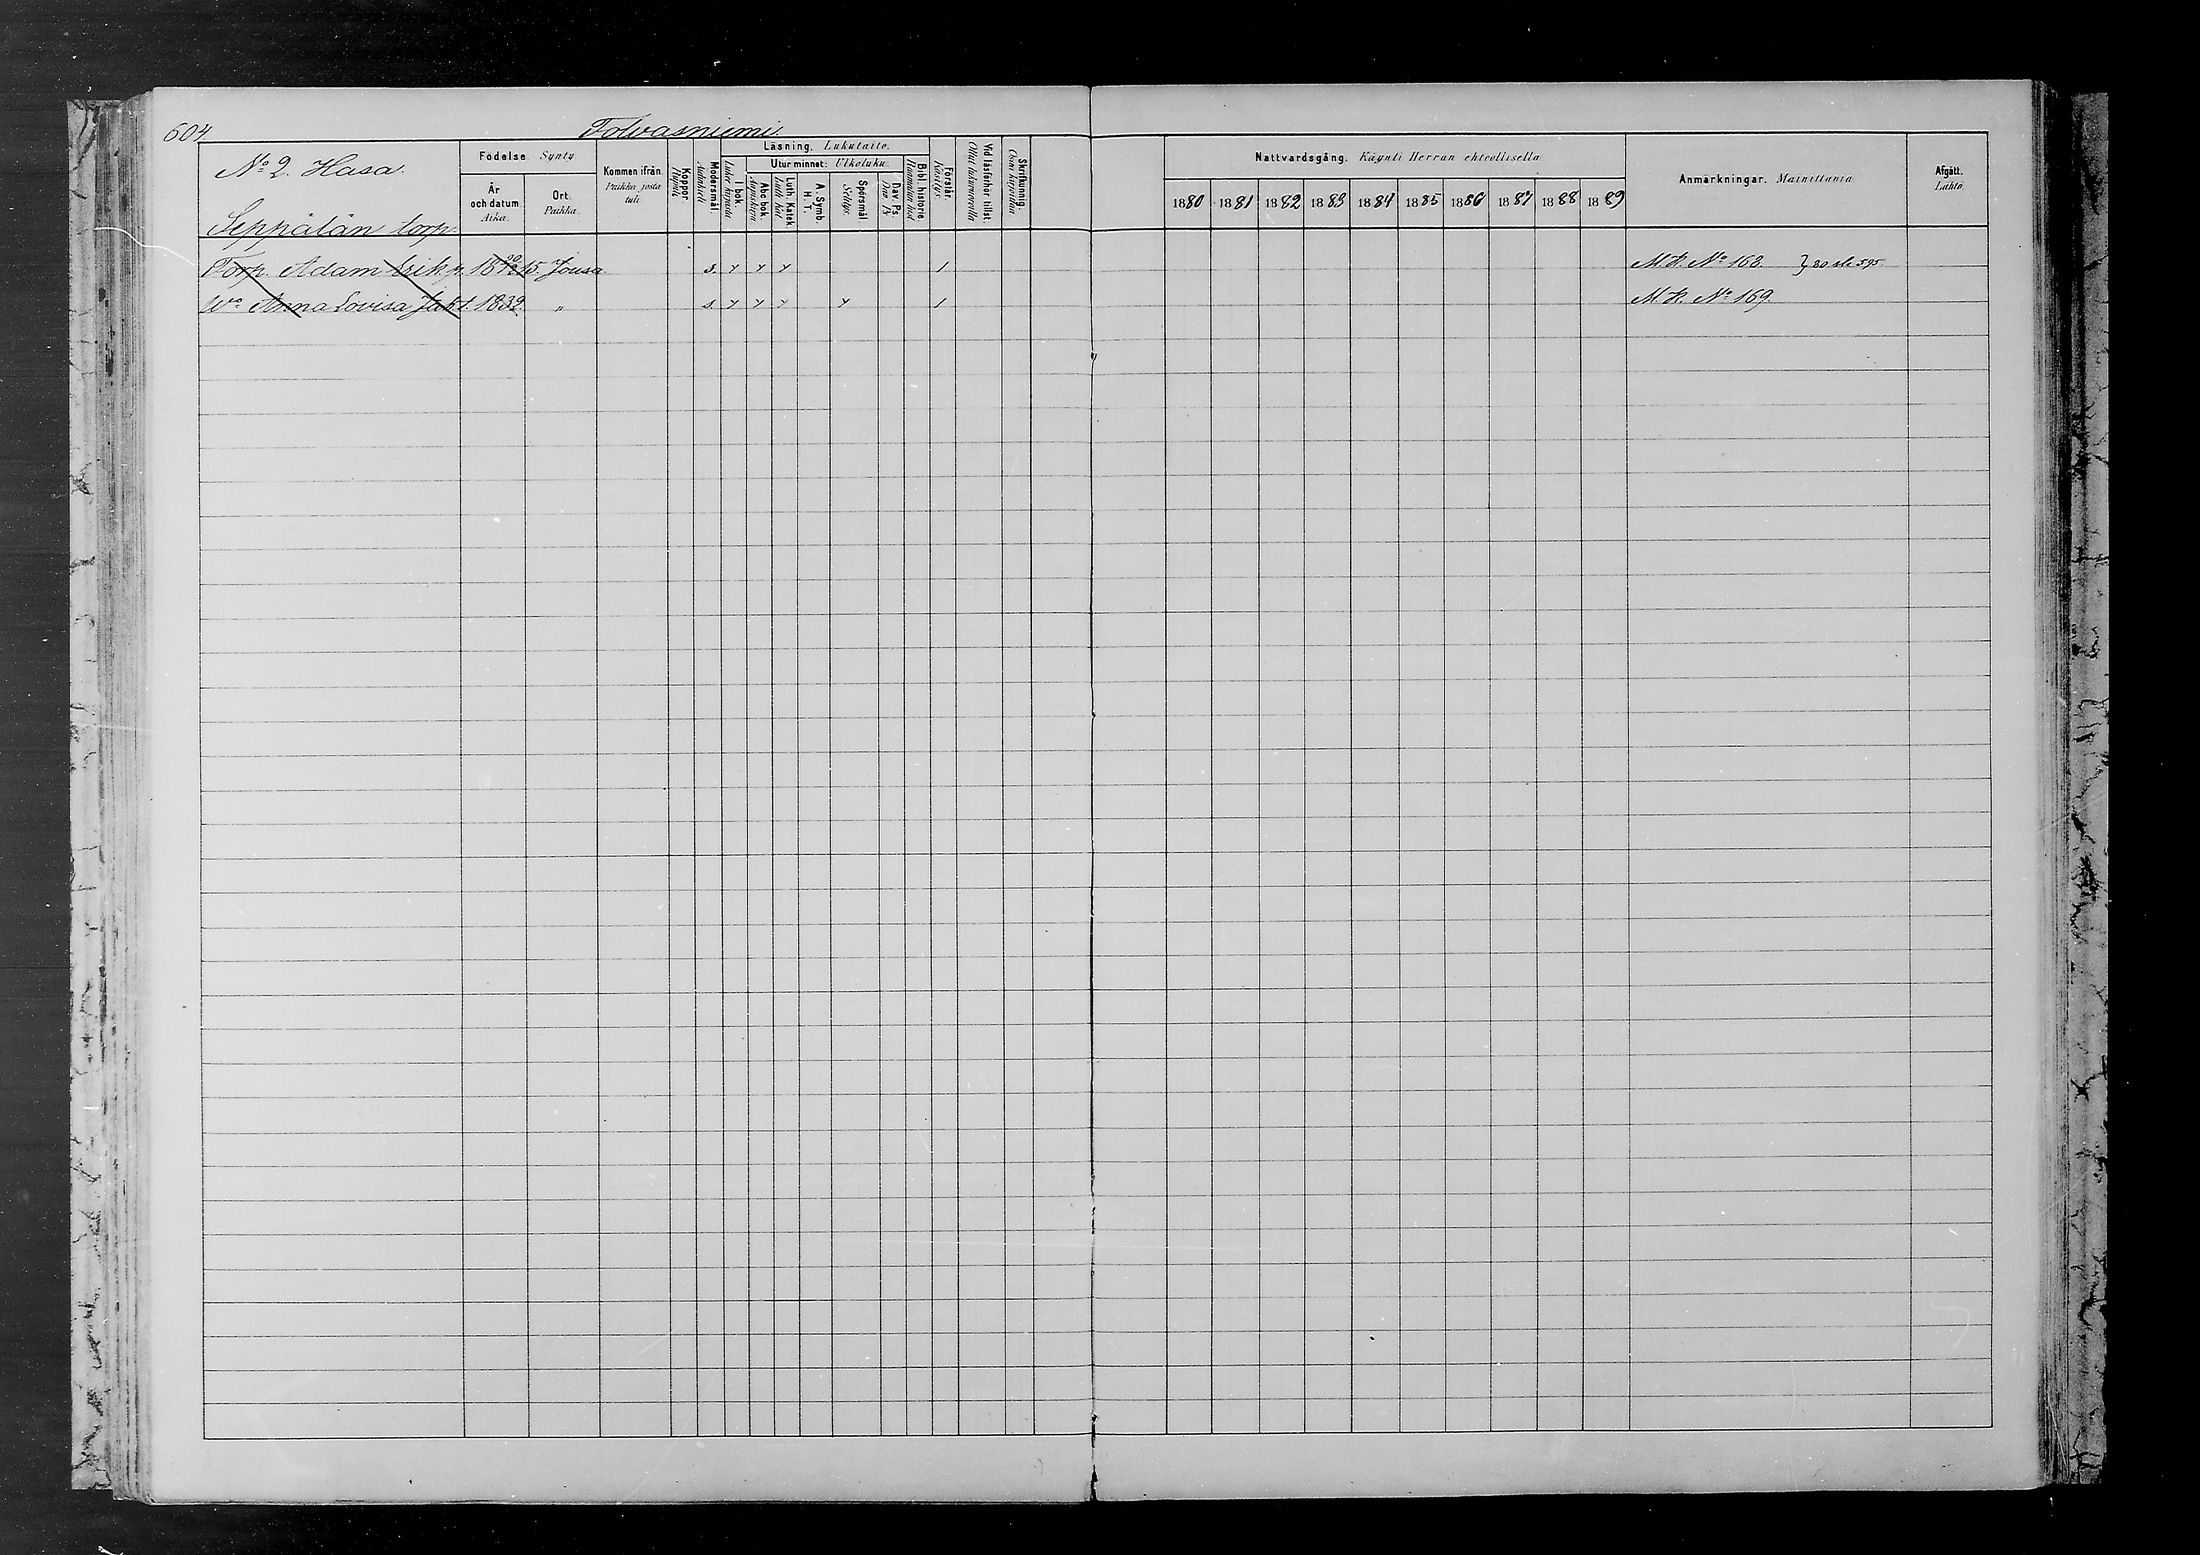 604
Tolvasniemi
No 2. Hasa.
Seppälän torp.
Födelse. Synty
År och datum. Aika.
Ort. Paikka.
Kommen ifrån. Paikka josta tuli
Koppor. Rupuli
Modersmål. Äidinkieli
Läsning. Lukutaito.
I bok. Lukee kirjasta
Utur minnet: Ulkoluku.
Abc bok. Aapiskirja
Luth. Katek. Luth. Kat.
A. Symb. H. T.
Spörsmål Selitys.
Dav. Ps. Dav. Ps
Bibl. historie.
Förstår. Käsitys.
Vid läsförhör tillst. Ollut lukuvuorolla
Skrifkunnig. Osaa kirjoittaa
Nattvardsgång. Käynti Herran ehtoollisella
1880 1881 1882 1883 1884 1885 1886 1887 1888 1889
Anmärkningar. Mainittavia
Afgått. Lähtö.
Torp. Adam Erik s. Jousa s. y y y 1 M.K. No 168. } 80 sl. 595
Wo Anna Lovisa 1839. " s. y y y y 1 M.K. No 169.